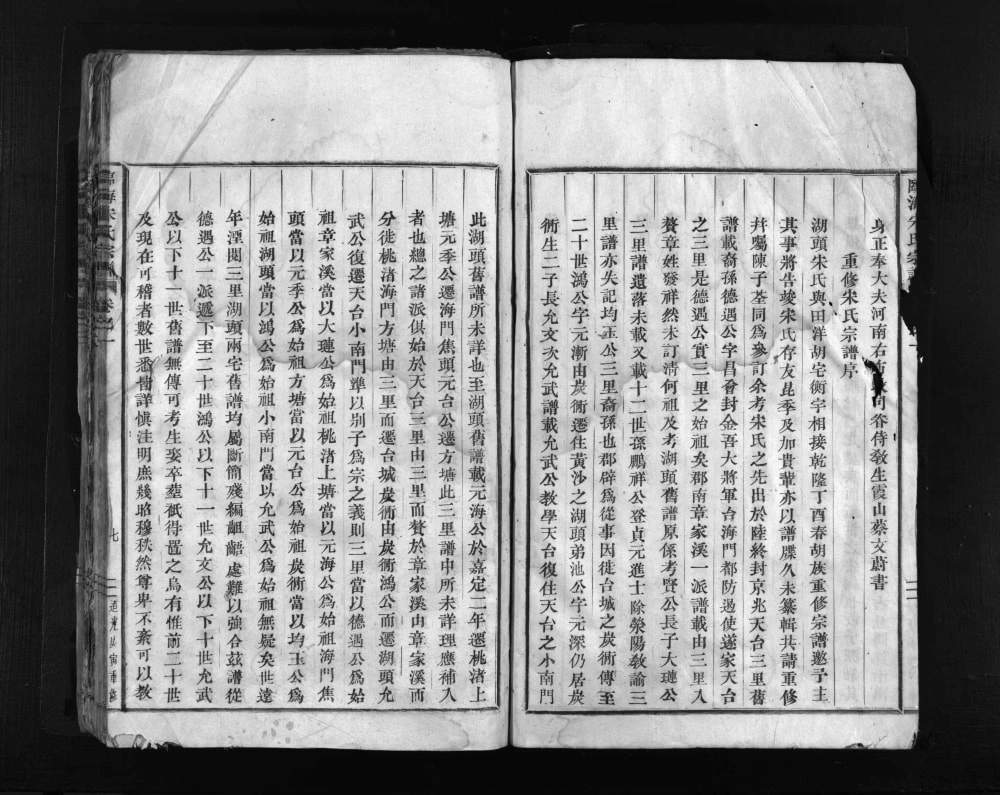 身正奉大夫河南右布政同眷侍敎生霞山蔡文蔚書
重修宋氏宗譜序
湖頭宋氏與田洋胡宅衡宇相接乾隆丁酉春胡族重修宗譜邀予主
其事將告竣宋氏存友昆季及加貴輩亦以譜牒久未纂輯共請重修
幷囑陳子荃同爲參訂余考宋氏之先出於陸終封京兆天台三里舊
譜載裔孫德遇公字昌奮封金吾大將軍台海門都防遏使遂家天台
之三里是德遇公實三里之始祖矣郡南章家溪一派譜載由三里入
贅章姓發祥然未訂淸何祖及考湖頭舊譜原係考賢公長子大璉公
三里譜遺落未載又載十二世孫鵬祥公登貞元進士除滎陽敎諭三
里譜亦失記均玉公三里裔孫也郡辟爲從事因徙台城之炭衕傳至
二十世鴻公字元漸由炭衕遷住黃沙之湖頭弟池公字元深仍居炭
衕生二子長允文次允武譜載允武公敎學天台復住天台之小南門
此湖頭舊譜所未詳也至湖頭舊譜載元海公於嘉定二年遷桃渚上
塘元季公遷海門焦頭元台公遷方塘此三里譜中所未詳理應補入
者也總之諸派俱始於天台三里由三里而贅於章家溪由章家溪而
分徙桃渚海門方塘由三里而遷台城炭衕由炭衕鴻公而遷湖頭允
武公復遷天台小南門準以別子爲宗之義則三里當以德遇公爲始
祖章家溪當以大璉公爲始祖桃渚上塘當以元海公爲始祖海門焦
頭當以元季公爲始祖方塘當以元台公爲始祖炭衕當以均玉公爲
始祖湖頭當以鴻公爲始祖小南門當以允武公爲始祖無疑矣世遠
年湮閱三里湖頭兩宅舊譜均屬斷簡殘編齟齬處難以強合茲譜從
德遇公一派遞下至二十世鴻公以下十一世允文公以下十世允武
公以下十一世舊譜無傳可考生娶卒塟祇得置之烏有惟前二十世
及現在可稽者數世悉備詳愼注明庶幾昭穆秩然尊卑不紊可以敎
臨海宋氏宗譜 卷之一
七